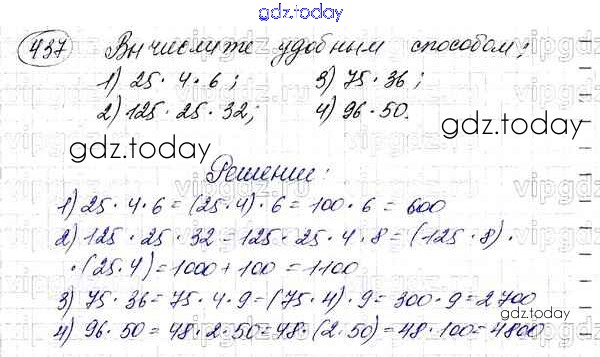 gdz.today
437 Вычислите удобным способом:
1) 25 · 4 · 6; 3) 75 · 36;
2) 125 · 25 · 32; 4) 96 · 50.
gdz.today
gdz.today
Решение:
1) 25 · 4 · 6 = (25 · 4) · 6 = 100 · 6 = 600
2) 125 · 25 · 32 = 125 · 25 · 4 · 8 = (125 · 8) ·
· (25 · 4) = 1000 + 100 = 1100
3) 75 · 36 = 75 · 4 · 9 = (75 · 4) · 9 = 300 · 9 = 2700
4) 96 · 50 = 48 · 2 · 50 = 48 · (2 · 50) = 48 · 100 = 4800
gdz.today